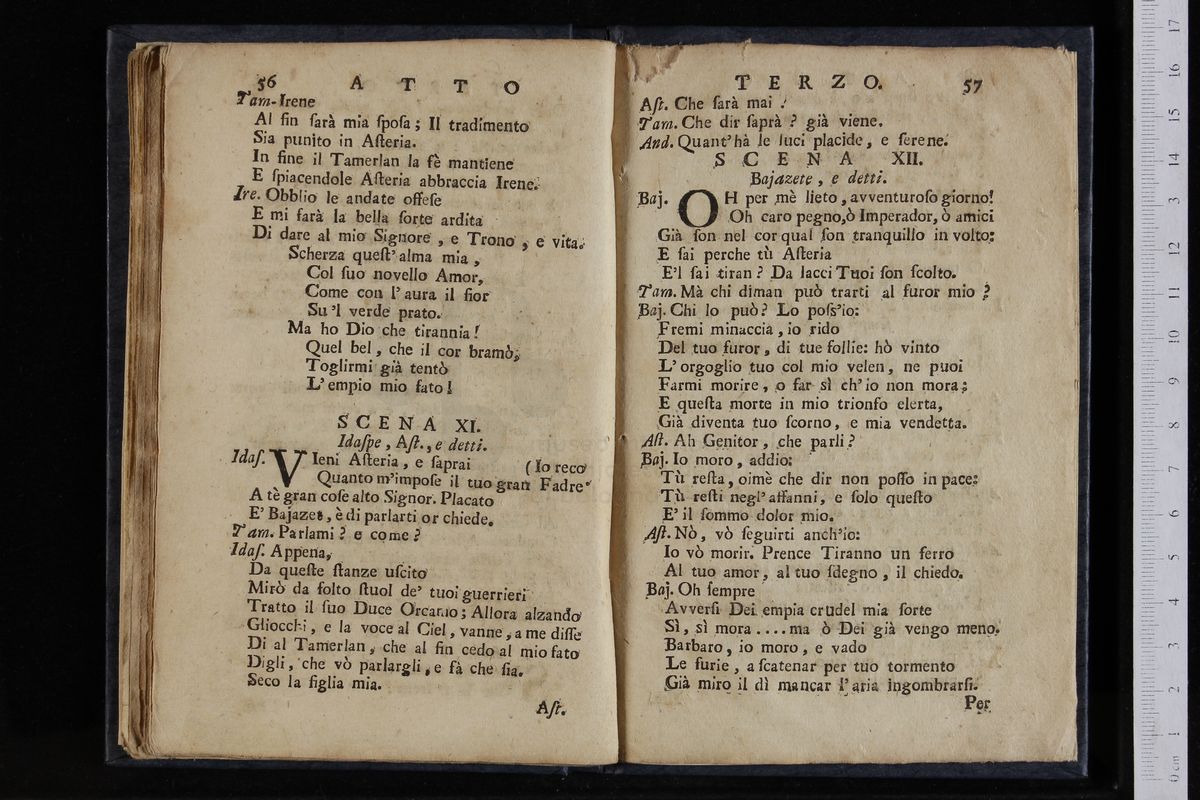 56 ATTO
Tam. Irene
Al fin ſarà mia ſpoſa; Il tradimento
Sia punito in Aſteria.
In fine il Tamerlan la fè mantiene
E ſpiacendole Aſteria abbraccia Irene.
Ire. Obblio le andate offeſe
E mi farà la bella ſorte ardita
Di dare al mio Signore, e Trono, e vita.
Scherza queſt'alma mia,
Col ſuo novello Amor,
Come con l'aura il fior
Su'l verde prato.
Ma ho Dio che tirannia!
Quel bel, che il cor bramò,
Toglirmi già tentò
L'empio mio fato!
SCENA XI.
Idaſpe, Aſt., e detti.
Idaſ. VIeni Aſteria, e ſaprai (Io reco
Quanto m'impoſe il tuo gran Padre
A tè gran coſe alto Signor. Placato
E' Bajazet, è di parlarti or chiede.
Tam. Parlami? e come?
Idaſ. Appena,
Da queſte ſtanze uſcito
Mirò da folto ſtuol de' tuoi guerrieri
Tratto il ſuo Duce Orcano; Allora alzando
Gliocchi, e la voce al Ciel, vanne, a me diſſe
Di al Tamerlan, che al fin cedo al mio fato
Digli, che vò parlargli, e fà che ſia.
Seco la figlia mia.
Aſt.
TERZO. 57
Aſt. Che ſarà mai?
Tam. Che dir ſaprà? già viene.
And. Quant'hà le luci placide, e ſerene.
SCENA XII.
Bajazete, e detti.
Baj. OH per mè lieto, avventuroſo giorno!
Oh caro pegno, ò Imperador, ò amici
Già ſon nel cor qual ſon tranquillo in volto:
E ſai perche tù Aſteria
E'l ſai tiran? Da lacci Tuoi ſon ſcolto.
Tam. Mà chi diman può trarti al furor mio?
Baj. Chi lo può? Lo poſs'io:
Fremi minaccia, io rido
Del tuo furor, di tue follie: hò vinto
L'orgoglio tuo col mio velen, ne puoi
Farmi morire, o far sì ch'io non mora;
E queſta morte in mio trionfo elerta,
Già diventa tuo ſcorno, e mia vendetta.
Aſt. Ah Genitor, che parli?
Baj. Io moro, addio:
Tù reſta, oimè che dir non poſſo in pace:
Tù reſti negl'affanni, e ſolo queſto
E'il ſommo dolor mio.
Aſt. Nò, vò ſeguirti anch'io:
Io vò morir. Prence Tiranno un ferro
Al tuo amor, al tuo ſdegno, il chiedo.
Baj. Oh ſempre
Avverſi Dei empia crudel mia ſorte
Sì, sì mora....ma ò Dei già vengo meno.
Barbaro, io moro, e vado
Le furie, a ſcatenar per tuo tormento
Già miro il dì mancar l'aria ingombrarſi.
Per